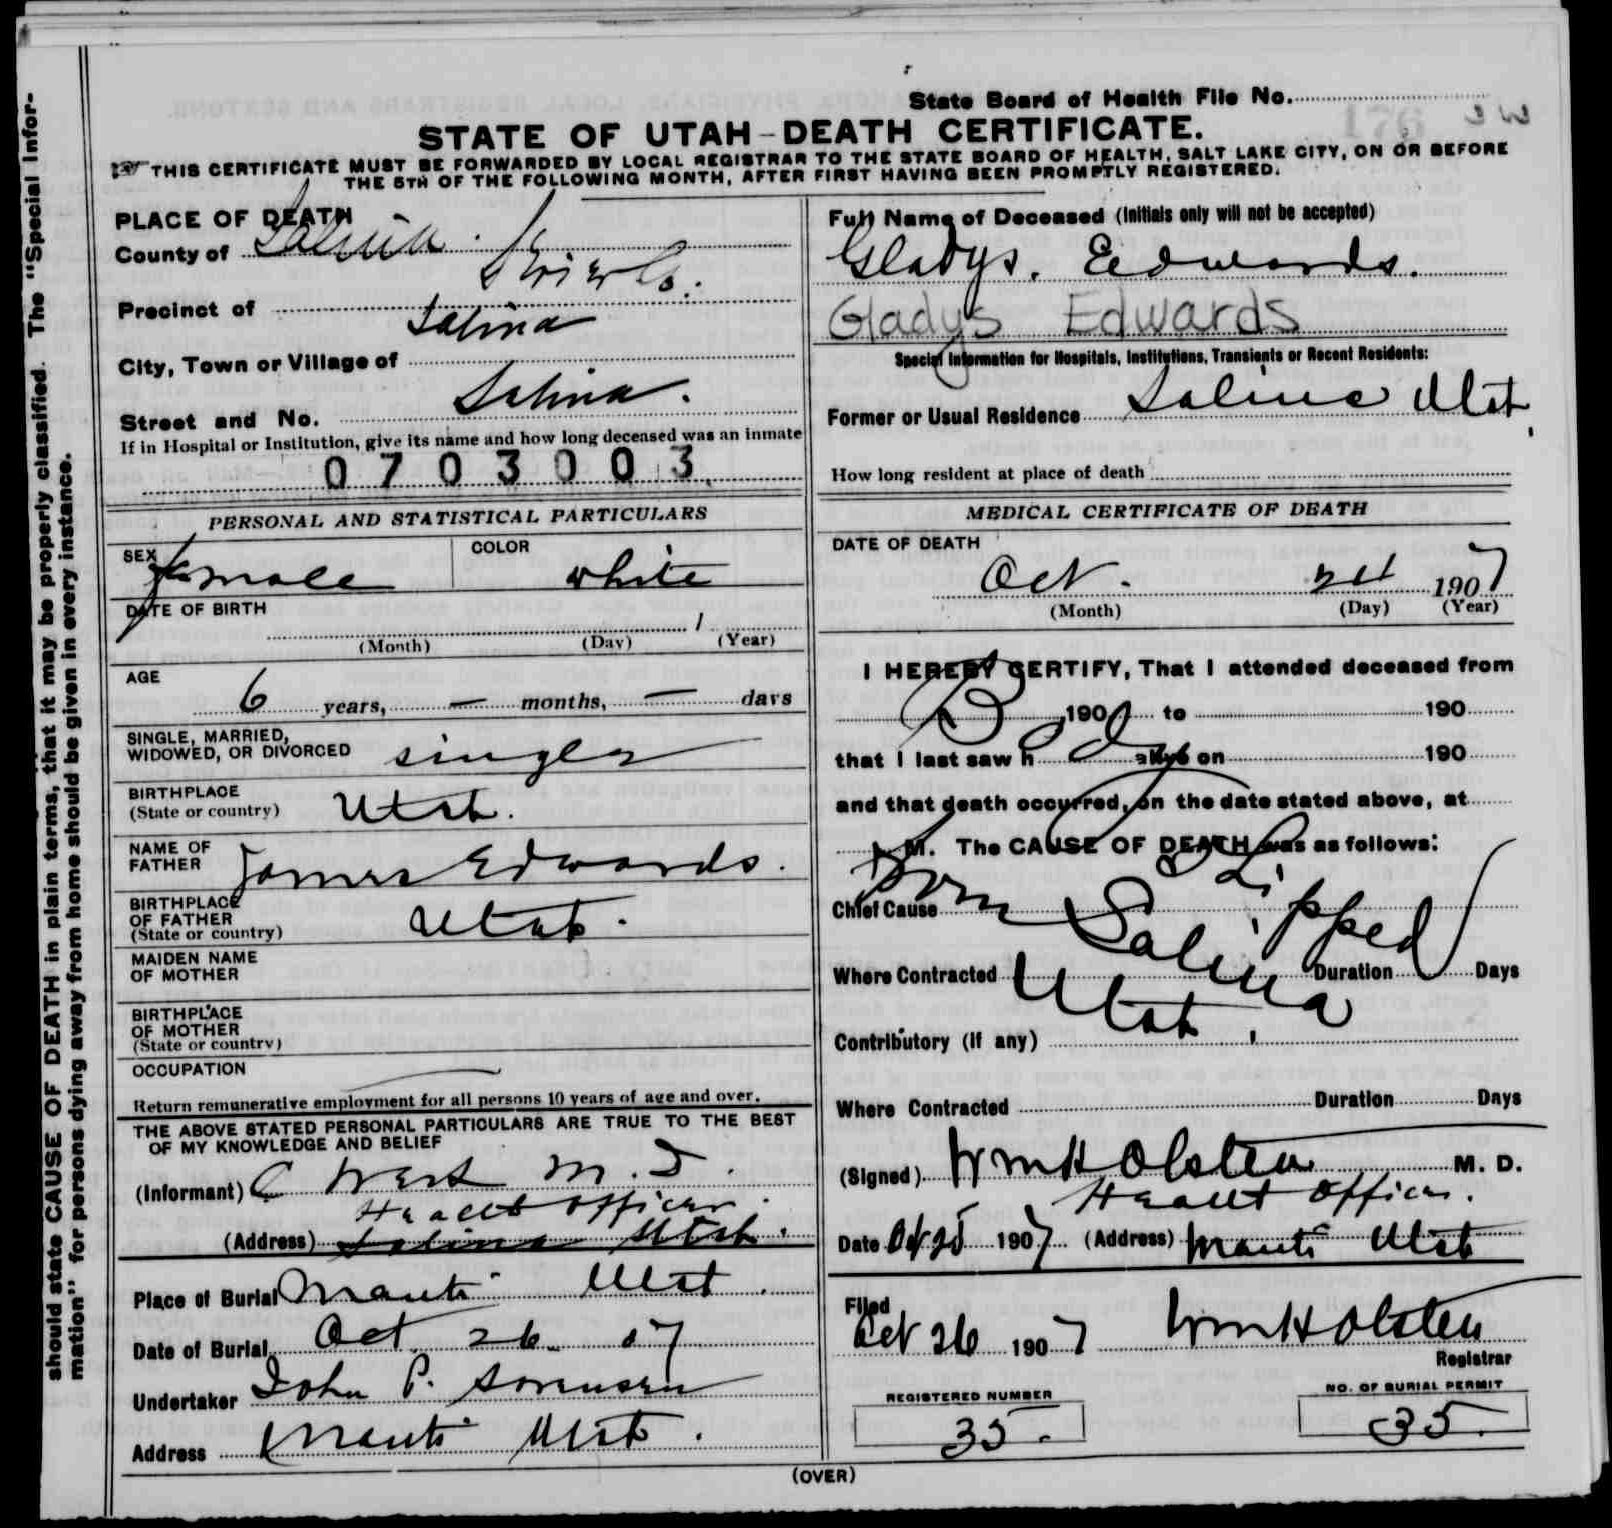 State Board of Health File No.
STATE OF UTAH-DEATH CERTIFICATE.
THIS CERTIFICATE MUST BE FORWARDED BY LOCAL REGISTRAR TO THE STATE BOARD OF HEALTH, SALT LAKE CITY, ON OR BEFORE
THE 5TH OF THE FOLLOWING MONTH, AFTER FIRST HAVING BEEN PROMPTLY REGISTERED.
should state CAUSE OF DEATH in plain terms, that it may be properly classified. The "Special Infor-
mation" for persons dying away from home should be given in every instance.
PLACE OF DEATH
County of Salina. Sevier Co.
Precinct of Salina
City, Town or Village of
Salina.
Street and No.
If in Hospital or Institution, give its name and how long deceased was an inmate
0703003
Full Name of Deceased (Initials only will not be accepted)
Gladys. Edwards.
Gladys Edwards
Special Information for Hospitals, Institutions, Transients or Recent Residents:
Former or Usual Residence Salina Utah
How long resident at place of death
PERSONAL AND STATISTICAL PARTICULARS
SEX female COLOR white
DATE OF BIRTH
1
(Month) (Day) (Year)
AGE
6 years, — months, — days
SINGLE, MARRIED,
WIDOWED, OR DIVORCED single
BIRTHPLACE
(State or country) Utah.
NAME OF
FATHER James Edwards.
BIRTHPLACE
OF FATHER
(State or country) Utah.
MAIDEN NAME
OF MOTHER
BIRTHPLACE
OF MOTHER
(State or country)
OCCUPATION
Return remunerative employment for all persons 10 years of age and over.
THE ABOVE STATED PERSONAL PARTICULARS ARE TRUE TO THE BEST
OF MY KNOWLEDGE AND BELIEF
(Informant) C West M.D.
Health Officer.
(Address) Salina Utah.
Place of Burial Manti Utah.
Date of Burial Oct 26 07
Undertaker John P. Sorensen
Address Manti Utah.
MEDICAL CERTIFICATE OF DEATH
DATE OF DEATH
Oct. 24 1907
(Month) (Day) (Year)
I HEREBY CERTIFY, That I attended deceased from
190 to 190
that I last saw h alive on 190
Body
and that death occurred, on the date stated above, at
M. The CAUSE OF DEATH was as follows:
Shipped
Chief Cause from Salina
Where Contracted Utah. Duration Days
Contributory (If any)
Where Contracted Duration Days
(Signed) Wm H Olsten M. D.
Health Officer.
Date Oct 25 1907 (Address) Manti Utah
Filed
Oct 26 1907 Wm H Olsten
Registrar
REGISTERED NUMBER
35.
NO. OF BURIAL PERMIT
35.
(OVER)